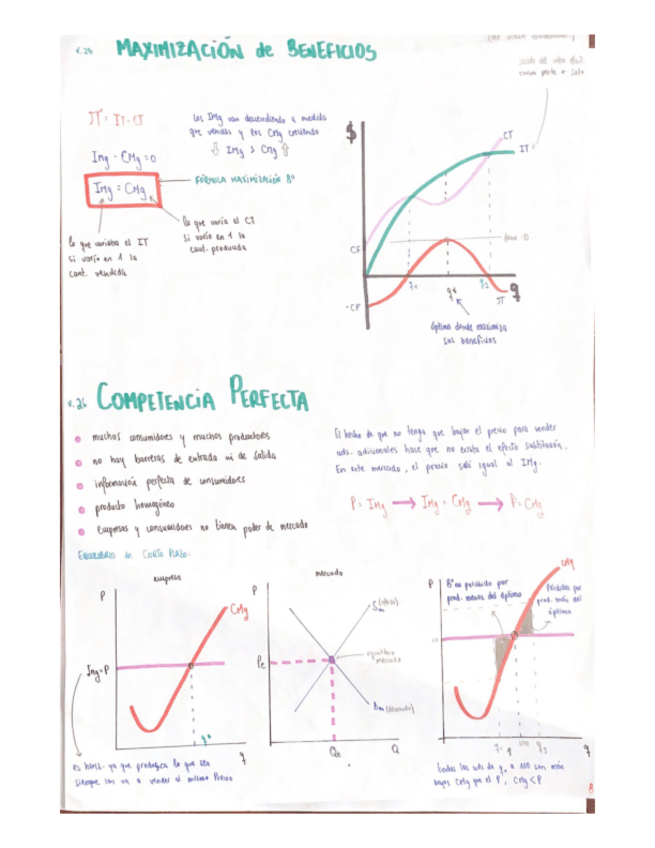 V.24 MAXIMIZACIÓN de BENEFICIOS
π = IT - CT
Los IMg van descendiendo a medida
que vendas y los CMg creciendo
⇩ IMg > CMg ⇧
Img - CMg = 0
IMg = CMg
FÓRMULA MAXIMIZACIÓN Bº
lo que variaba el IT
si vario en 1 la
cant. vendida
lo que varía el CT
si vario en 1 la
cant. producida
$
CT
IT
CF
-CF
π
q
óptimo donde maximiza
sus beneficios
COMPETENCIA PERFECTA
muchos consumidores y muchos productores
no hay barreras de entrada ni de salida
información perfecta de consumidores
producto homogéneo
empresas y consumidores no tienen poder de mercado
El hecho de que no tenga que bajar el precio para vender
uds. adicionales hace que no exista el efecto sustitución.
En este mercado, el precio será igual al IMg.
P = IMg → IMg = CMg → P = CMg
EQUILIBRIO de CORTO PLAZO:
empresa
P
CMg
Img=P
q*
q
es horiz. ya que produzca lo que sea
siempre los va a vender al mismo Precio
mercado
P
Sm (oferta)
Pe
equilibrio
mercado
Dm (demanda)
Qe
Q
P
CMg
Bº no percibido por
prod. menos del óptimo
Pérdidas por
prod. más del
óptimo
100
q2
q
todas las uds de q1 a 100 son más
bajos CMg que el P, CMg < P